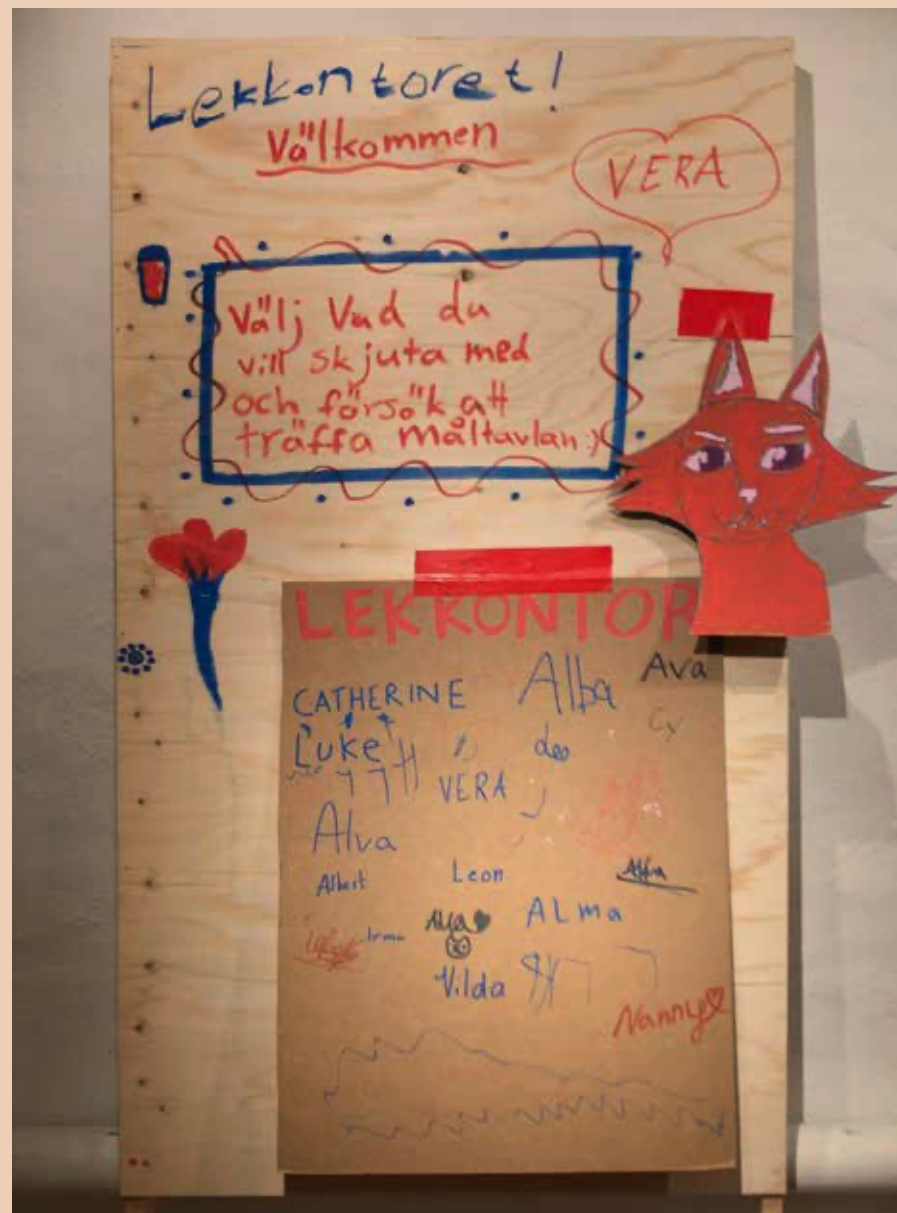 Lekkontoret!
Vällkommen
VERA
Välj Vad du
vill skjuta med
och försök att
träffa måltavlan :)
LEKKONTOR
CATHERINE Alba Ava
Luke
VERA
Alva
Albert Leon
Irma ALma
Vilda
Nanny